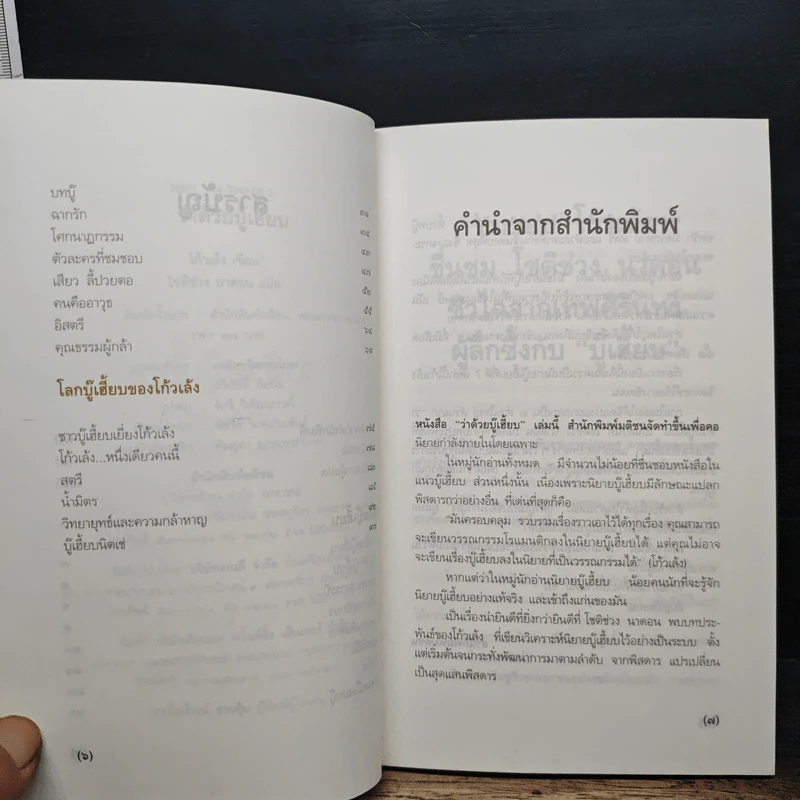 บทบู๊
ฉากรัก ๓๑
โศกนาฏกรรม ๓๔
ตัวละครที่ชมชอบ ๔๓
เสียว ลี้ปวยตอ ๔๗
คนคืออาวุธ ๕๒
อิสตรี ๕๕
คุณธรรมผู้กล้า ๖๔
โลกบู๊เฮี้ยบของโก้วเล้ง
ชาวบู๊เฮี้ยบเยี่ยงโก้วเล้ง
โก้วเล้ง...หนึ่งเดียวคนนี้ ๗๘
สตรี
น้ำมิตร
วิทยายุทธ์และความกล้าหาญ
บู๊เฮี้ยบนิตเช่
(๖)
คำนำจากสำนักพิมพ์
หนังสือ “ว่าด้วยบู๊เฮี้ยบ” เล่มนี้ สำนักพิมพ์มติชนจัดทำขึ้นเพื่อคอ
นิยายกำลังภายในโดยเฉพาะ
ในหมู่นักอ่านทั้งหมด - มีจำนวนไม่น้อยที่ชื่นชอบหนังสือใน
แนวบู๊เฮี้ยบ ส่วนหนึ่งนั้น เนื่องเพราะนิยายบู๊เฮี้ยบมีลักษณะแปลก
พิสดารกว่าอย่างอื่น ที่เด่นที่สุดก็คือ
“มันครอบคลุม รวบรวมเรื่องราวเอาไว้ได้ทุกเรื่อง คุณสามารถ
จะเขียนวรรณกรรมโรแมนติกลงในนิยายบู๊เฮี้ยบได้ แต่คุณไม่อาจ
จะเขียนเรื่องบู๊เฮี้ยบลงในนิยายที่เป็นวรรณกรรมได้” (โก้วเล้ง)
หากแต่ว่าในหมู่นักอ่านนิยายบู๊เฮี้ยบ น้อยคนนักที่จะรู้จัก
นิยายบู๊เฮี้ยบอย่างแท้จริง และเข้าถึงแก่นของมัน
เป็นเรื่องน่ายินดีที่ยิ่งกว่ายินดีที่ โชติช่วง นาดอน พบบทประ-
พันธ์ของโก้วเล้ง ที่เขียนวิเคราะห์นิยายบู๊เฮี้ยบไว้อย่างเป็นระบบ ตั้ง
แต่เริ่มต้นจนกระทั่งพัฒนาการมาตามลำดับ จากพิสดาร แปรเปลี่ยน
เป็นสุดแสนพิสดาร
(๗)